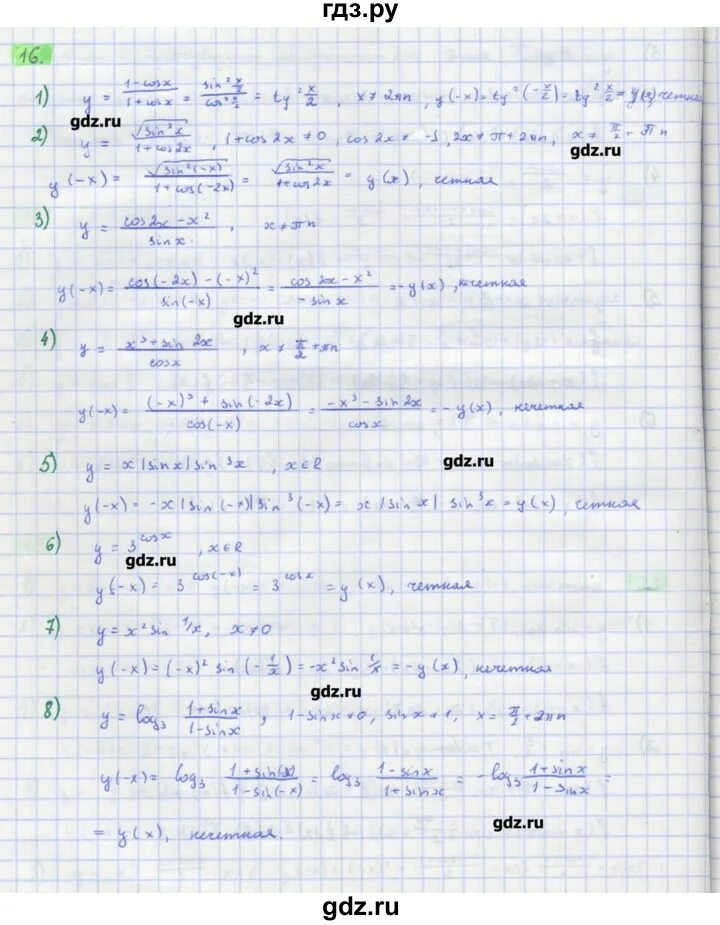 гдз.ру
16.
1) y = (1-cosx)/(1+cosx) = (sin² x/2)/(cos² x/2) = tg² x/2 , x ≠ 2πn , y(-x) = tg²(-x/2) = tg² x/2 = y(x) четная
gdz.ru
2) y = √(sin²x)/(1+cos2x) , 1+cos2x ≠ 0, cos2x ≠ -1, 2x ≠ π+2πn, x ≠ π/2 + πn
gdz.ru
y(-x) = √(sin²(-x))/(1+cos(-2x)) = √(sin²x)/(1+cos2x) = y(x), четная
3) y = (cos2x - x²)/sinx , x ≠ πn
y(-x) = (cos(-2x) - (-x)²)/sin(-x) = (cos2x - x²)/(-sinx) = -y(x), нечетная
gdz.ru
4) y = (x³+sin2x)/cosx , x ≠ π/2 + πn
y(-x) = ((-x)³ + sin(-2x))/cos(-x) = (-x³ - sin2x)/cosx = -y(x), нечетная
5) y = x|sinx|sin³x , x∈R
gdz.ru
y(-x) = -x|sin(-x)|sin³(-x) = x|sinx| sin³x = y(x), четная
6) y = 3^cosx , x∈R
gdz.ru
y(-x) = 3^cos(-x) = 3^cosx = y(x), четная
7) y = x² sin 1/x, x ≠ 0
y(-x) = (-x)² sin(-1/x) = -x² sin 1/x = -y(x), нечетная
gdz.ru
8) y = log₃ (1+sinx)/(1-sinx) , 1-sinx ≠ 0, sinx ≠ 1, x = π/2 + 2πn
y(-x) = log₃ (1+sin(-x))/(1-sin(-x)) = log₃ (1-sinx)/(1+sinx) = -log₃ (1+sinx)/(1-sinx) =
gdz.ru
= y(x), нечетная.
gdz.ru